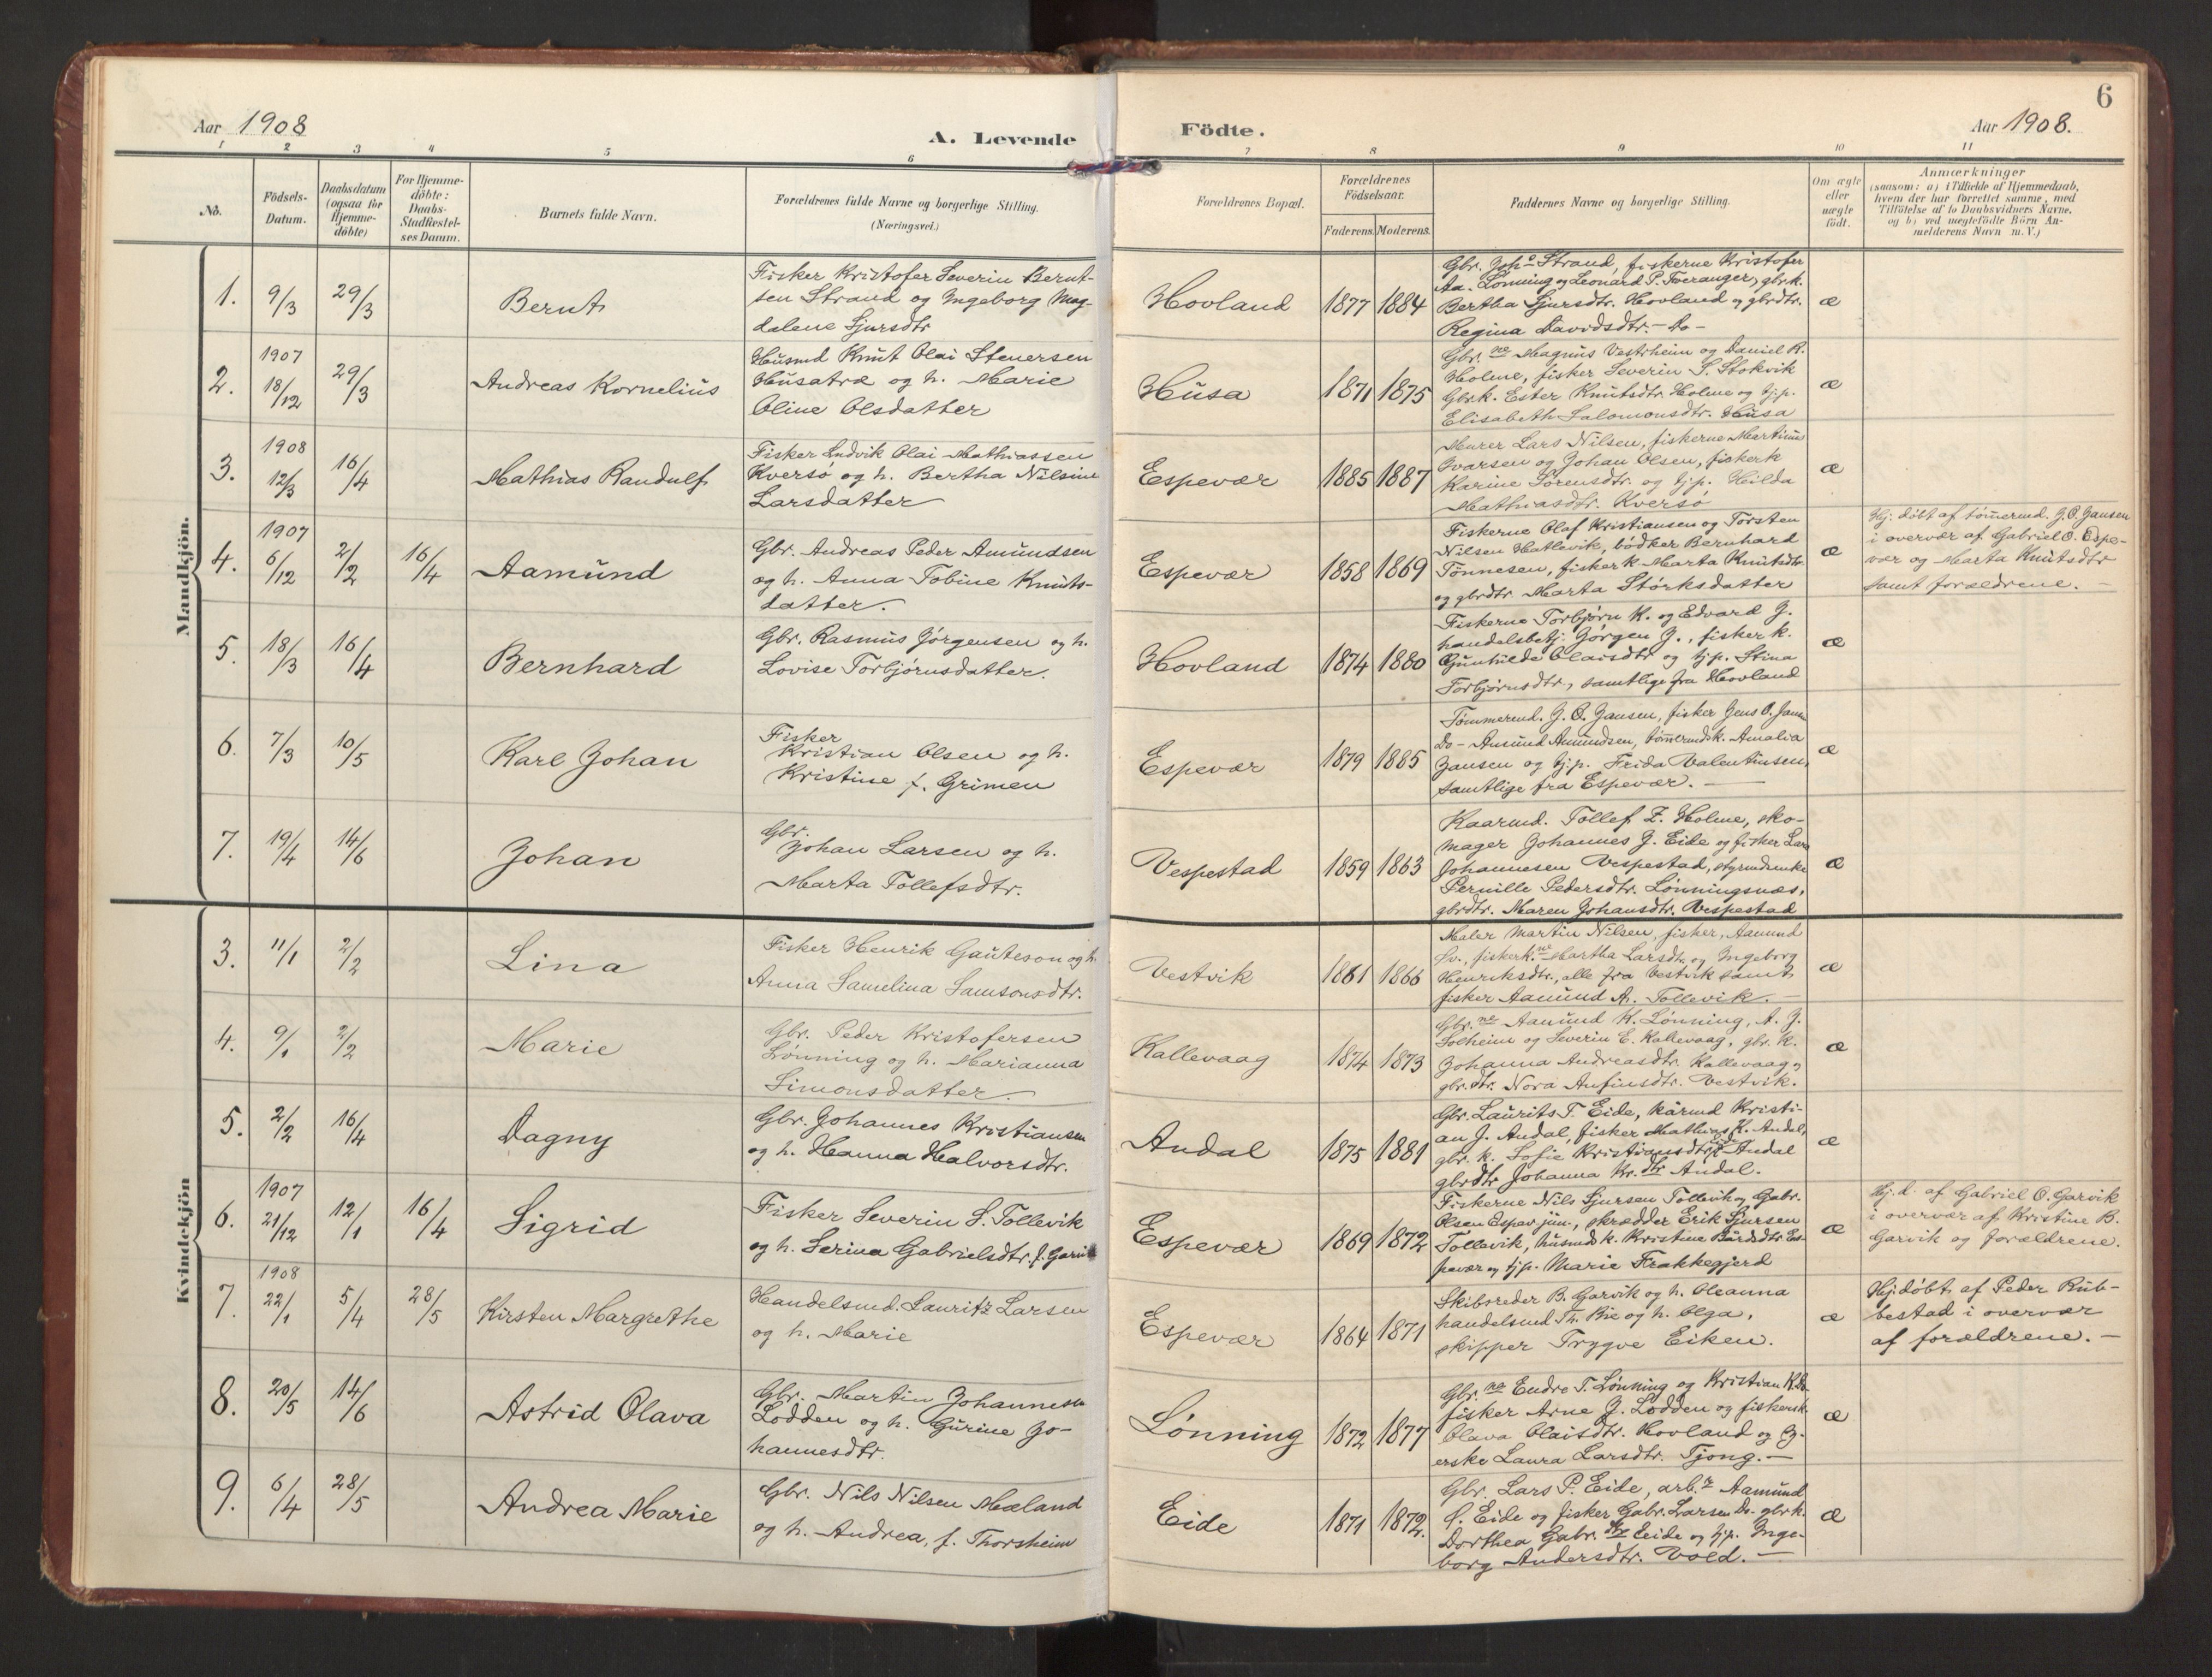 Aar 1908
A. Levende
Födte.
Aar 1908.
6
1 2 3 4 5 6 7 8 9 10 11
No.
Födsels-
Datum.
Daabsdatum
(ogsaa for
Hjemme-
döbte)
For Hjemme-
döbte:
Daabs-
Stadfæstel-
ses Datum.
Barnets fulde Navn.
Forældrenes fulde Navne og borgerlige Stilling.
(Næringsvei.)
Forældrenes Bopæl.
Forældrenes
Födselsaar.
Faderens. Moderens.
Faddernes Navne og borgerlige Stilling.
Om ægte
eller
uægte
födt.
Anmærkninger
(saasom: a) i Tilfælde af Hjemmedaab,
hvem der har forrettet samme, med
Tilföielse af to Daabsvidners Navne,
og b) ved uægtefödte Börn An-
melderens Navn m. V.)
Mandkjön.
1. 9/3 29/3 Bernt
Fisker Kristofer Severin Bernt-
sen Strand og Ingeborg Mag-
dalene Sjursdtr
Hovland 1877 1884
Gbr. Joh.s Strand, fiskerne Kristofer
Aa. Lønning og Leonard P. Tveranger, gbr.k.
Bertha Sjursdtr. Hovland og gbrdtr.
Regina Davidsdtr. – Do –
æ
2. 1907 18/12 29/3 Andreas Kornelius
Husmd Knut Olai Stenersen
Husatræ og h. Marie
Oline Olsdatter
Husa 1871 1875
Gbr.ne Magnus Vestrheim og Daniel R.
Holme, fisker Severin S. Stokvik
Gbr.k. Ester Knutsdtr. Holme og tj.p.
Elisabeth Salomonsdtr. Husa
æ
3. 1908 12/3 16/4 Mathias Randulf
Fisker Ludvik Olai Mathiassen
Kversø og h. Bertha Nilsine
Larsdatter
Espevær 1885 1887
Murer Lars Nilsen, fiskerne Martinus
Ivarsen og Johan Olsen, fiskerk
Karine Sørensdtr. og tj.p. Hilda
Mathiasdtr. Kversø
æ
4. 1907 6/12 2/2 16/4 Aamund
Gbr. Andreas Peder Amundsen
og h. Anna Tobine Knuts-
datter.
Espevær 1858 1869
Fiskerne Olaf Kristiansen og Torsten
Nilsen Hatlevik, bødker Bernhard
Tønnesen, fiskerk Marta Knutsdtr.
og gbrdtr Marta Størksdatter
æ
Hj. døbt af tømmermd. J. O. Jansen
i overvær af Gabriel O. Espe-
vær og Marta Knutsdtr
samt forældrene. –
5. 18/3 16/4 Bernhard
Gbr. Rasmus Jørgensen og h.
Lovise Torbjørnsdatter.
Hovland 1874 1880
Fiskerne Torbjørn K. og Edvard J.
handelsbetj. Jørgen J., fiskerk.
Gunhilde Olaisdtr og tj.p. Stina
Torbjørnsdtr, samtlige fra Hovland
æ
6. 7/3 10/5 Karl Johan
Fisker
Kristian Olsen og h.
Kristine f. Grimen
Espevær 1879 1885
Tømmermd. J. O. Jansen, fisker Jens O. Jansen
Do – Amund Amundsen, tømermdsk. Amalia
Jansen og tj.p. Frida Valentinsen,
samtlige fra Espevær. –
æ
7. 19/4 14/6 Johan
Gbr.
Johan Larsen og h.
Marta Tollefsdtr.
Vespestad 1859 1863
Kaarmd. Tollef Z. Holme, sko-
mager Johannes J. Eide og fisker Lars
Johannesen Vespestad, styrmdsenke
Pernille Pedersdtr. Lønningsnæs,
gbrdtr. Maren Johansdtr. Vespestad
æ
Kvindekjön
3. 11/1 2/2 Lina
Fisker Henrik Gauteson og h.
Anna Samelina Samsonsdtr.
Vestvik 1861 1866
Maler Martin Nilsen, fisker, Aamund
Sv., fiskerk.ne Martha Larsdtr. og Ingeborg
Henriksdtr., alle fra Vestvik samt
fisker Aamund A. Tollevik. –
æ
4. 9/1 2/2 Marie
Gbr. Peder Kristofersen
Lønning og h. Marianna
Simonsdatter.
Kallevaag 1874 1873
Gbr.ne Aamund K. Lønning, A. J.
Solheim og Severin E. Kallevaag, gbr. k.
Johanna Andreasdtr. Kallevaag og
gbr.dtr. Nora Anfinsdtr. Vestvik.
æ
5. 2/2 16/4 Dagny
Gbr. Johannes Kristiansen
og h. Hanna Halvorsdtr.
Andal 1875 1881
Gbr. Laurits T. Eide, kårmd Kristi-
an J. Andal, fisker Mathias K. Andal,
gbr. k. Sofie Kristiansdtr Andal
gbrdtr Johanna Kr.dtr Andal.
æ
6. 1907 21/12 12/1 16/4 Sigrid
Fisker Severin S. Tollevik
og h. Serina Gabrielsdtr. f. Garvik
Espevær 1869 1872
Fiskerne Nils Sjursen Tollevik og Gabr.
Olsen Espevær jun., skrædder Erik Sjursen
Tollevik, husmdsk. Kristine Bårdsdtr. Es-
pevær og tj.p. Marie Frakkegjerd
æ
Hj. d. af Gabriel O. Garvik
i overvær af Kristine B.
Garvik og forældrene.
7. 1908 22/1 5/4 28/5 Kirsten Margrethe
Handelsmd. Lauritz Larsen
og h. Marie
Espevær 1864 1871
Skibsreder B. Garvik og h. Oleanna
handelsmd Th. Bie og h. Olga,
skipper Trygve Eiken.
æ
Hj. døbt af Peder Rub-
bestad i overvær
af forældrene. –
8. 20/5 14/6 Astrid Olava
Gbr. Martin Johannesen
Lodden og h. Gurine Jo-
hannesdtr.
Lønning 1872 1877
Gbr.ne Endre T. Lønning og Kristian K. Do.
fisker Arne J. Lodden og fiskersk.
Olava Olaisdtr. Hovland og
Laura Larsdtr. Tjong. –
æ
9. 6/4 28/5 Andrea Marie
Gbr. Nils Nilsen Mæland
og h. Andrea, f. Thorsheim
Eide 1871 1872.
Gbr. Lars P. Eide, arb.r Aamund
Eide og fisker Gabr. Larsen Do. gbrk.
Dorthea Gabr. dtr Eide og tj.p. Inge-
borg Andersdtr. Vold. –
æ